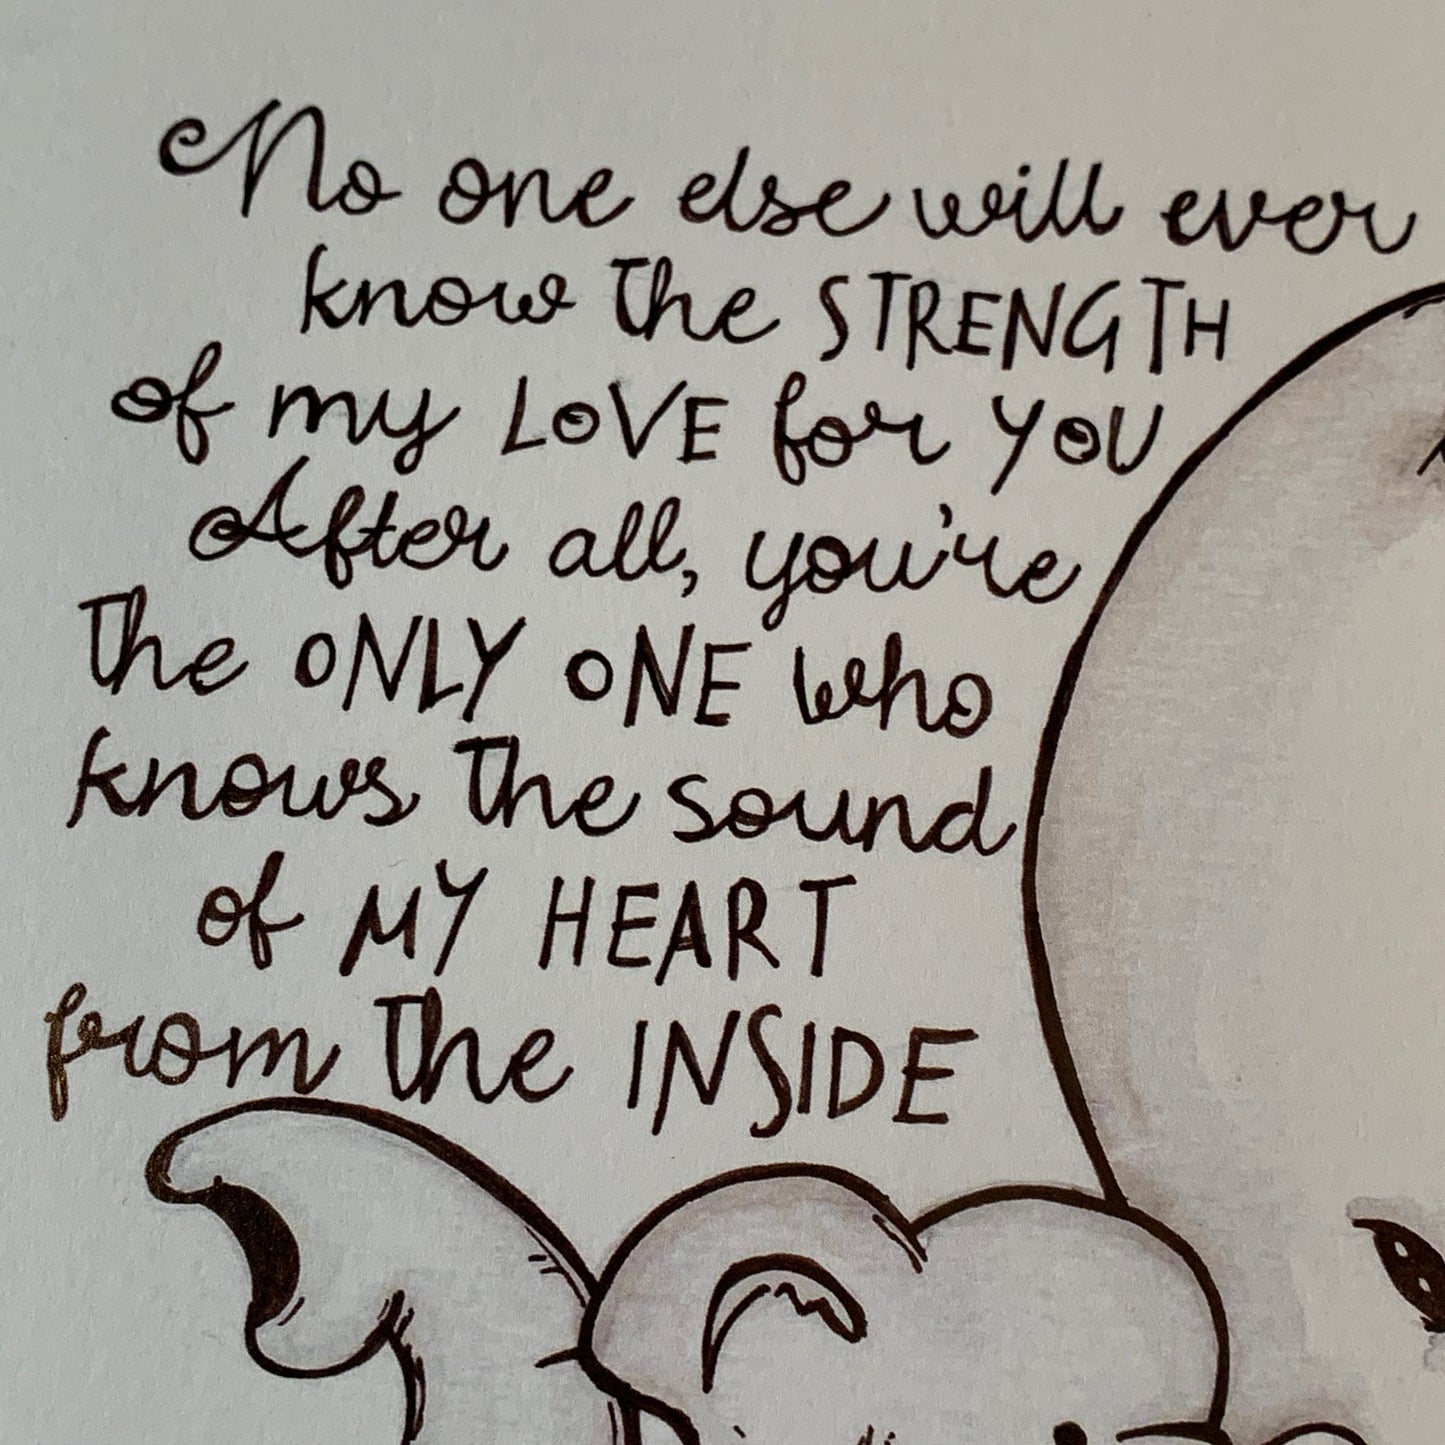 No one else will ever
know the STRENGTH
of my LOVE for YOU
After all, you're
the ONLY ONE who
knows the sound
of MY HEART
from the INSIDE